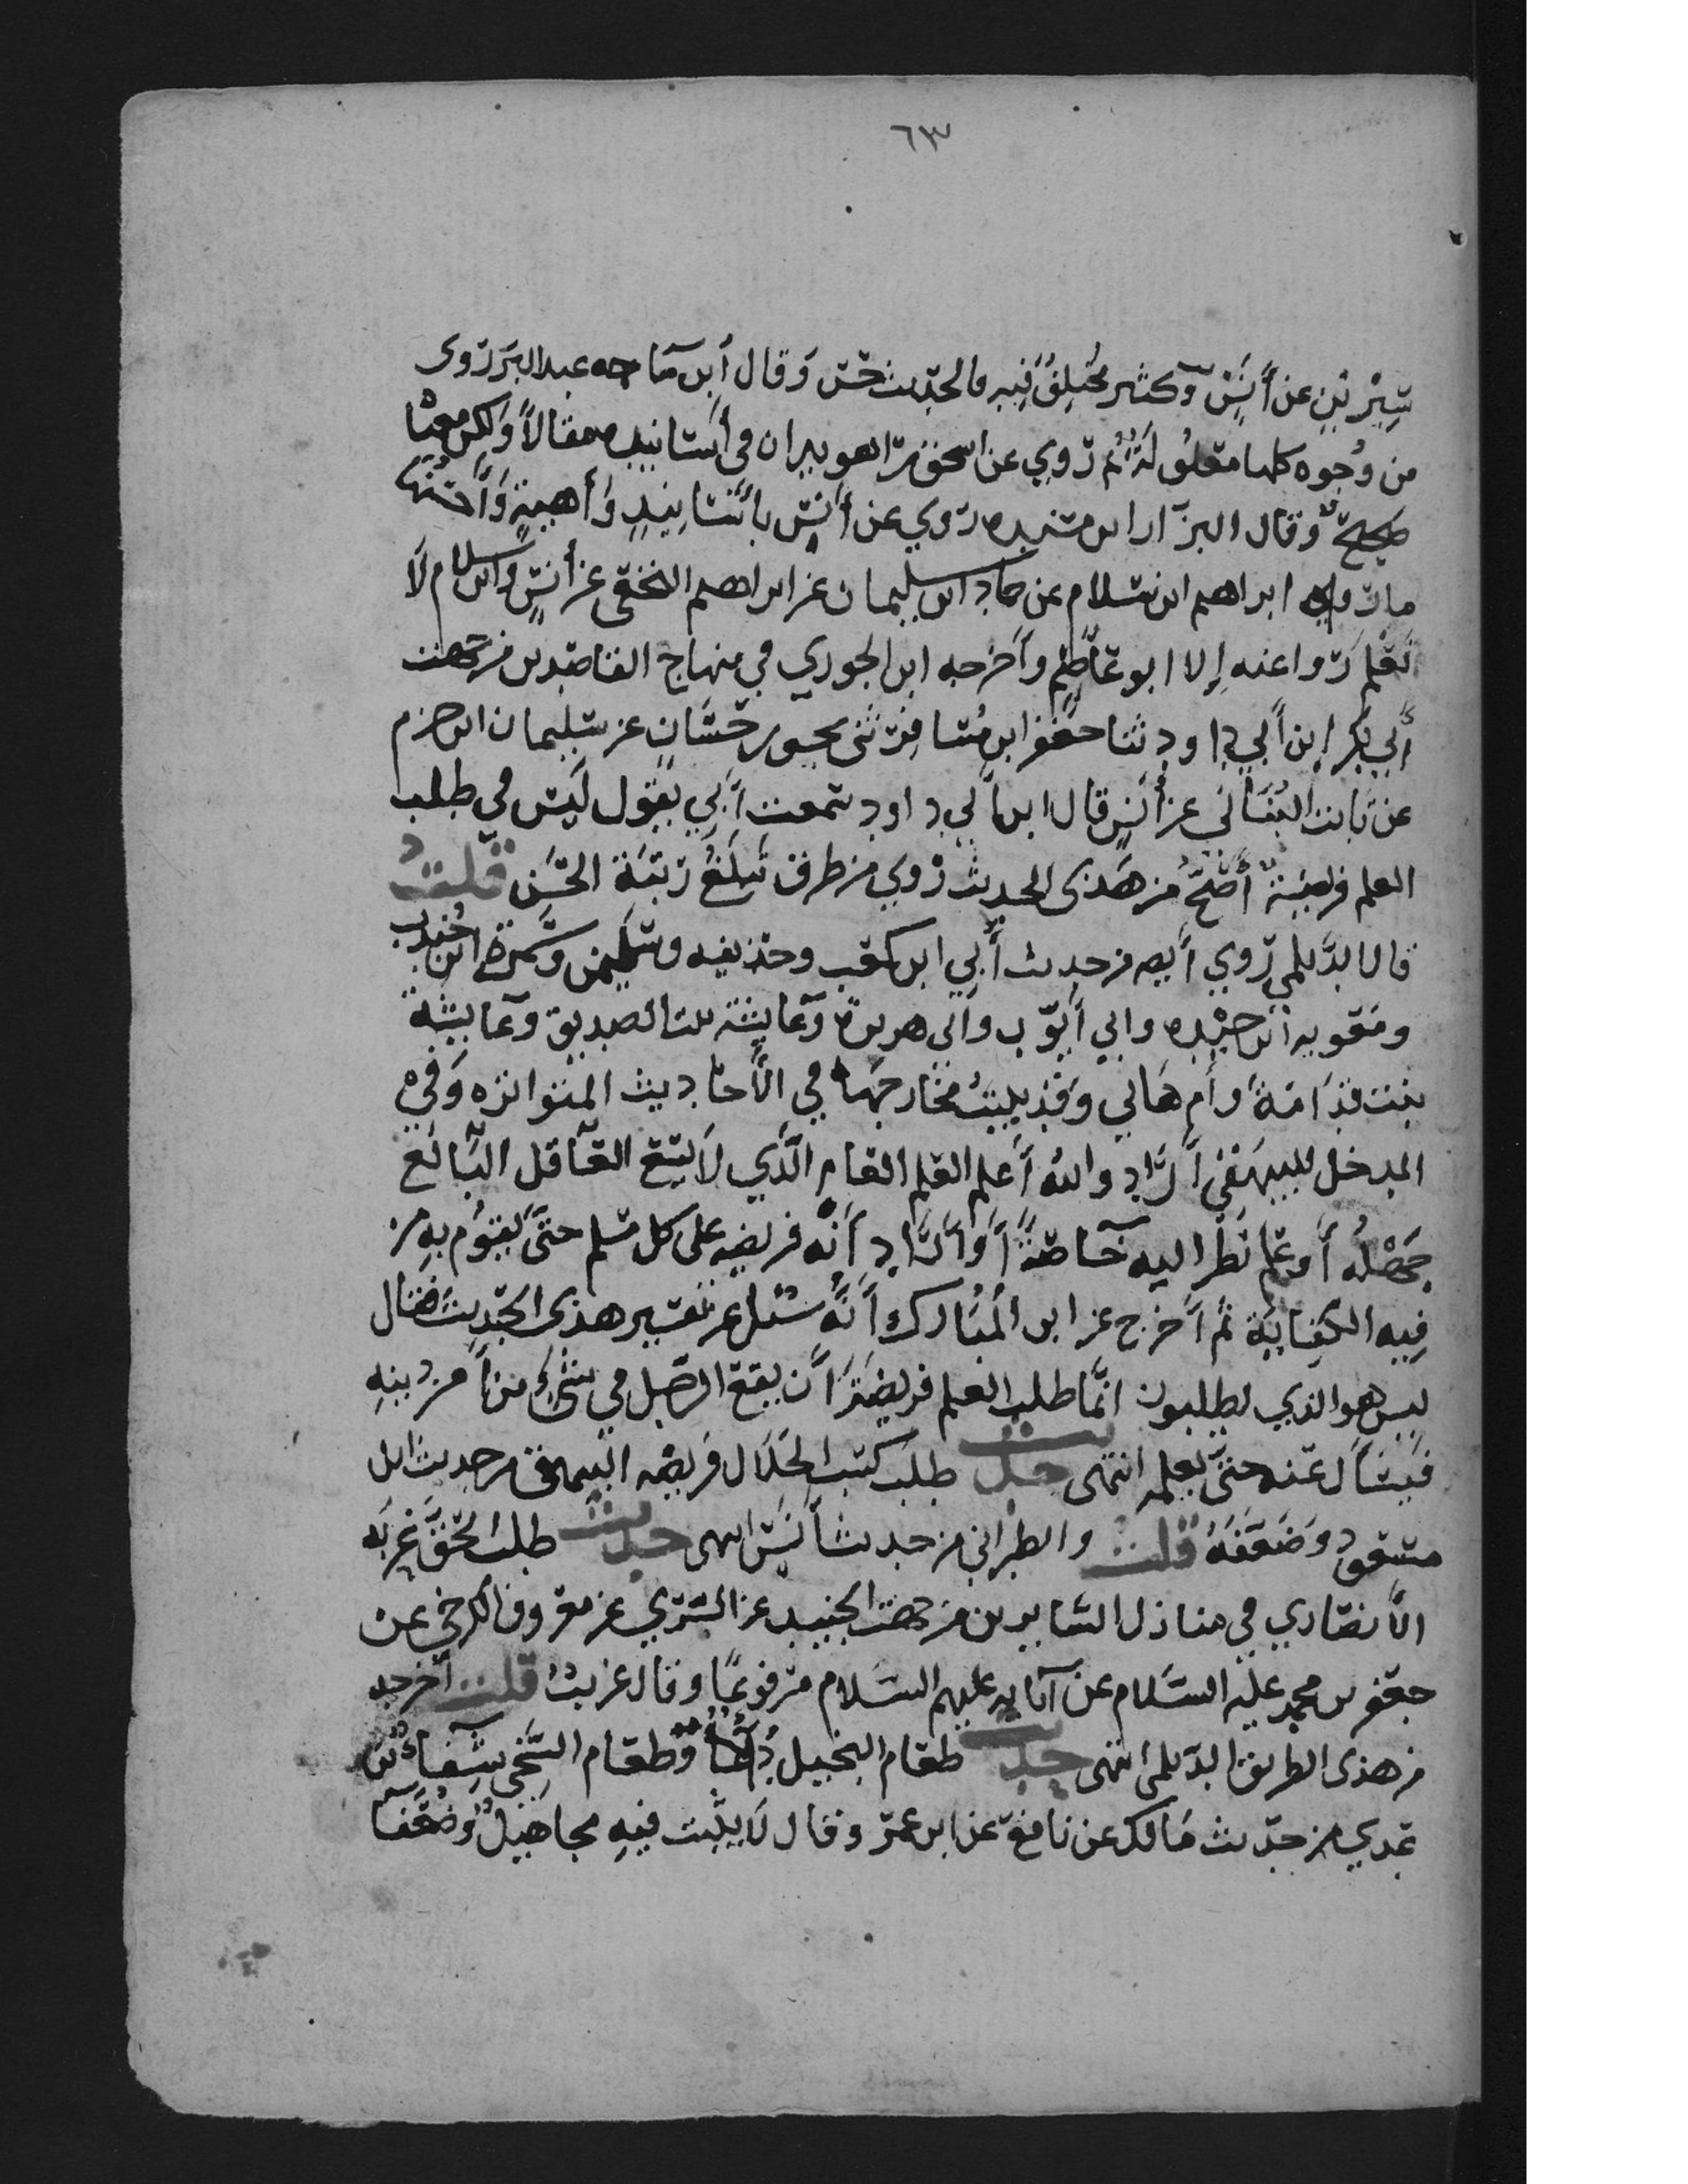 ٦٣
سيرين عن أنس وكثير مختلف فيه فالحديث حسن وقال ابن ماجه عبد البر روى
من وجوه كلها معلول ثم روي عن اسحق بن راهويه ان في أسانيده مقالاً ولكن معناه
صحيح وقال البزار في مسنده روي عن أنس بأسانيد واهية وأحسنها
ما رواه ابراهيم ابن سلام عن حماد ابن سليمان عن ابراهيم النخعي عن أنس وابن سلام لا
نعلم روا عنه إلا ابو عاصم وأخرجه ابن الجوزي في منهاج القاصدين من جهت
أبي بكر ابن أبي داود ثنا جعفر ابن مسافر ثنى يحيى بن حسان عن سليمان ابن حزم
عن ثابت البناني عن أنس قال ابن أبي داود سمعت أبي يقول ليس في طلب
العلم فريضة أصح من هذى الحديث روي من طرق تبلغ رتبة الحسن قلت
قال الديلمي روي أيضا من حديث أبي ابن كعب وحذيفه وسلمن وسمرة ابن جندب
ومعويه ابن حيده وابي أيوب وابي هريرة وعايشة بنت الصديق وعايشة
بنت قدامة وأم هاني وقد بينت مخارجها في الأحاديث المتواتره وفي
المدخل للبيهقي أراد والله أعلم العلم العام الذي لا يسع العاقل البالغ
جهله أو علم نظر اليه خاصة أو أراد أنه فريضه على كل مسلم حتى يقوم به من
فيه الكفاية ثم أخرج عن ابن المبارك أنه سئل عن تفسير هذى الحديث فقال
ليس هو الذي يطلبون انما طلب العلم فريضة أن يقع الرجل في شيء من أمر دينه
فيسأل عنه حتى يعلمه انتهى حديث طلب كسب الحلال فريضه البيهقي من حديث ابن
مسعود وضعفه قلت والطبراني من حديث أنس انتهى حديث طلب الحق غربه
الأنصاري في منازل السايرين من جهت الجنيد عن السري عن معروف الكرخي عن
جعفر بن محمد عليه السلام عن آبايه عليهم السلام مرفوعًا وقال غريب قلت أخرجه
من هذى الطريق الديلمي انتهى حديث طعام البخيل داء وطعام السخي شفاء ابن
عدي من حديث مالك عن نافع عن ابن عمر وقال لا يثبت فيه مجاهيل وضعفا